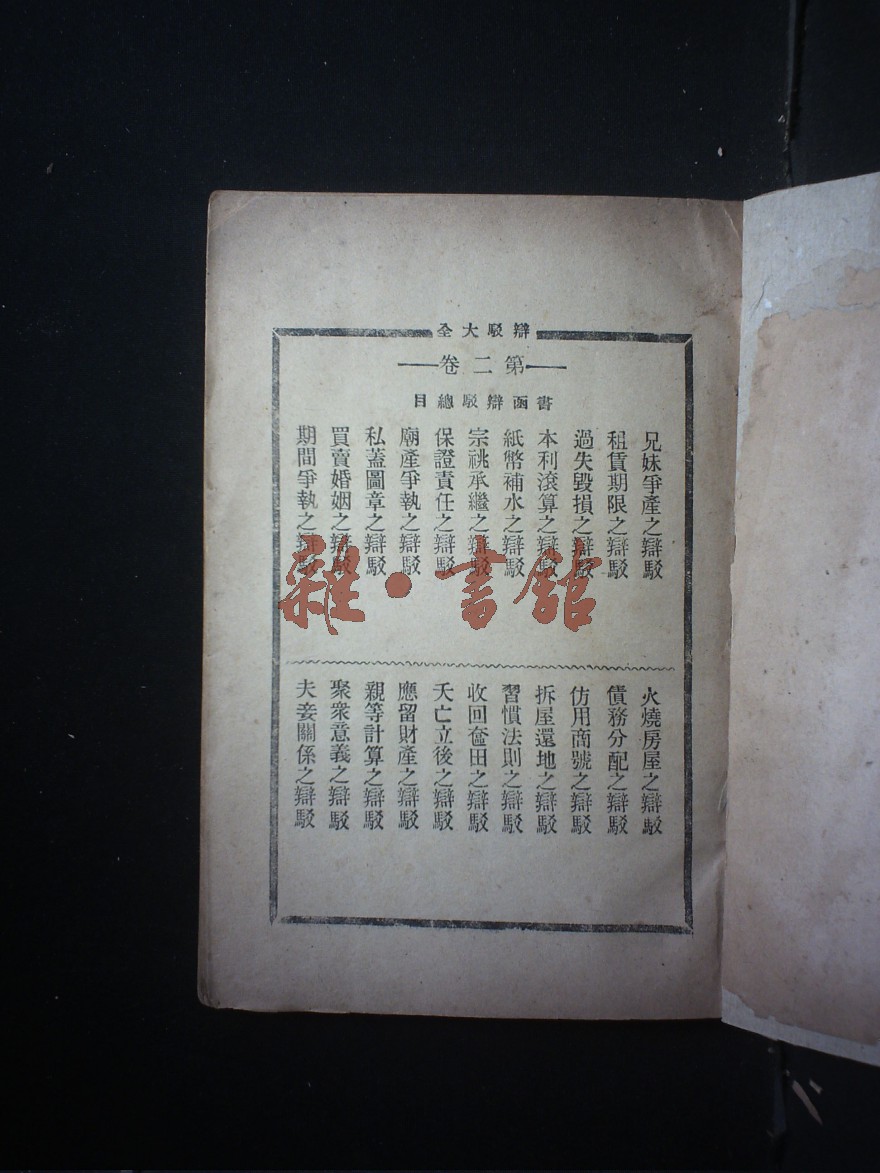 辯駁大全
第二卷
書函辯駁總目
兄妹爭產之辯駁
租賃期限之辯駁
過失毀損之辯駁
本利滾算之辯駁
紙幣補水之辯駁
宗祧承繼之辯駁
保證責任之辯駁
廟產爭執之辯駁
私蓋圖章之辯駁
買賣婚姻之辯駁
期間爭執之辯駁
火燒房屋之辯駁
債務分配之辯駁
仿用商號之辯駁
拆屋還地之辯駁
習慣法則之辯駁
收回奩田之辯駁
夭亡立後之辯駁
應留財產之辯駁
親等計算之辯駁
聚衆意義之辯駁
夫妾關係之辯駁
雜·書館